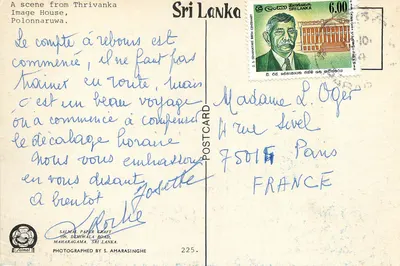 A scene from Thrivanka
Image House,
Polonnaruwa.
Sri Lanka
ශ්‍රී ලංකා
இலங்கை
SRI LANKA
6.00
Le compte à rebours est
commencé, il ne faut pas
traîner en route, mais
c'est un beau voyage
on a commencé à compenser
le décalage horaire
Nous vous embrassons
en vous disant
à bientôt
Josette
Roche
POSTCARD
Madame L. Oger
4 rue Sivel
75014 Paris
FRANCE
MAHARAGAMA, SRI LANKA
PHOTOGRAPHED BY S. AMARASINGHE
225.